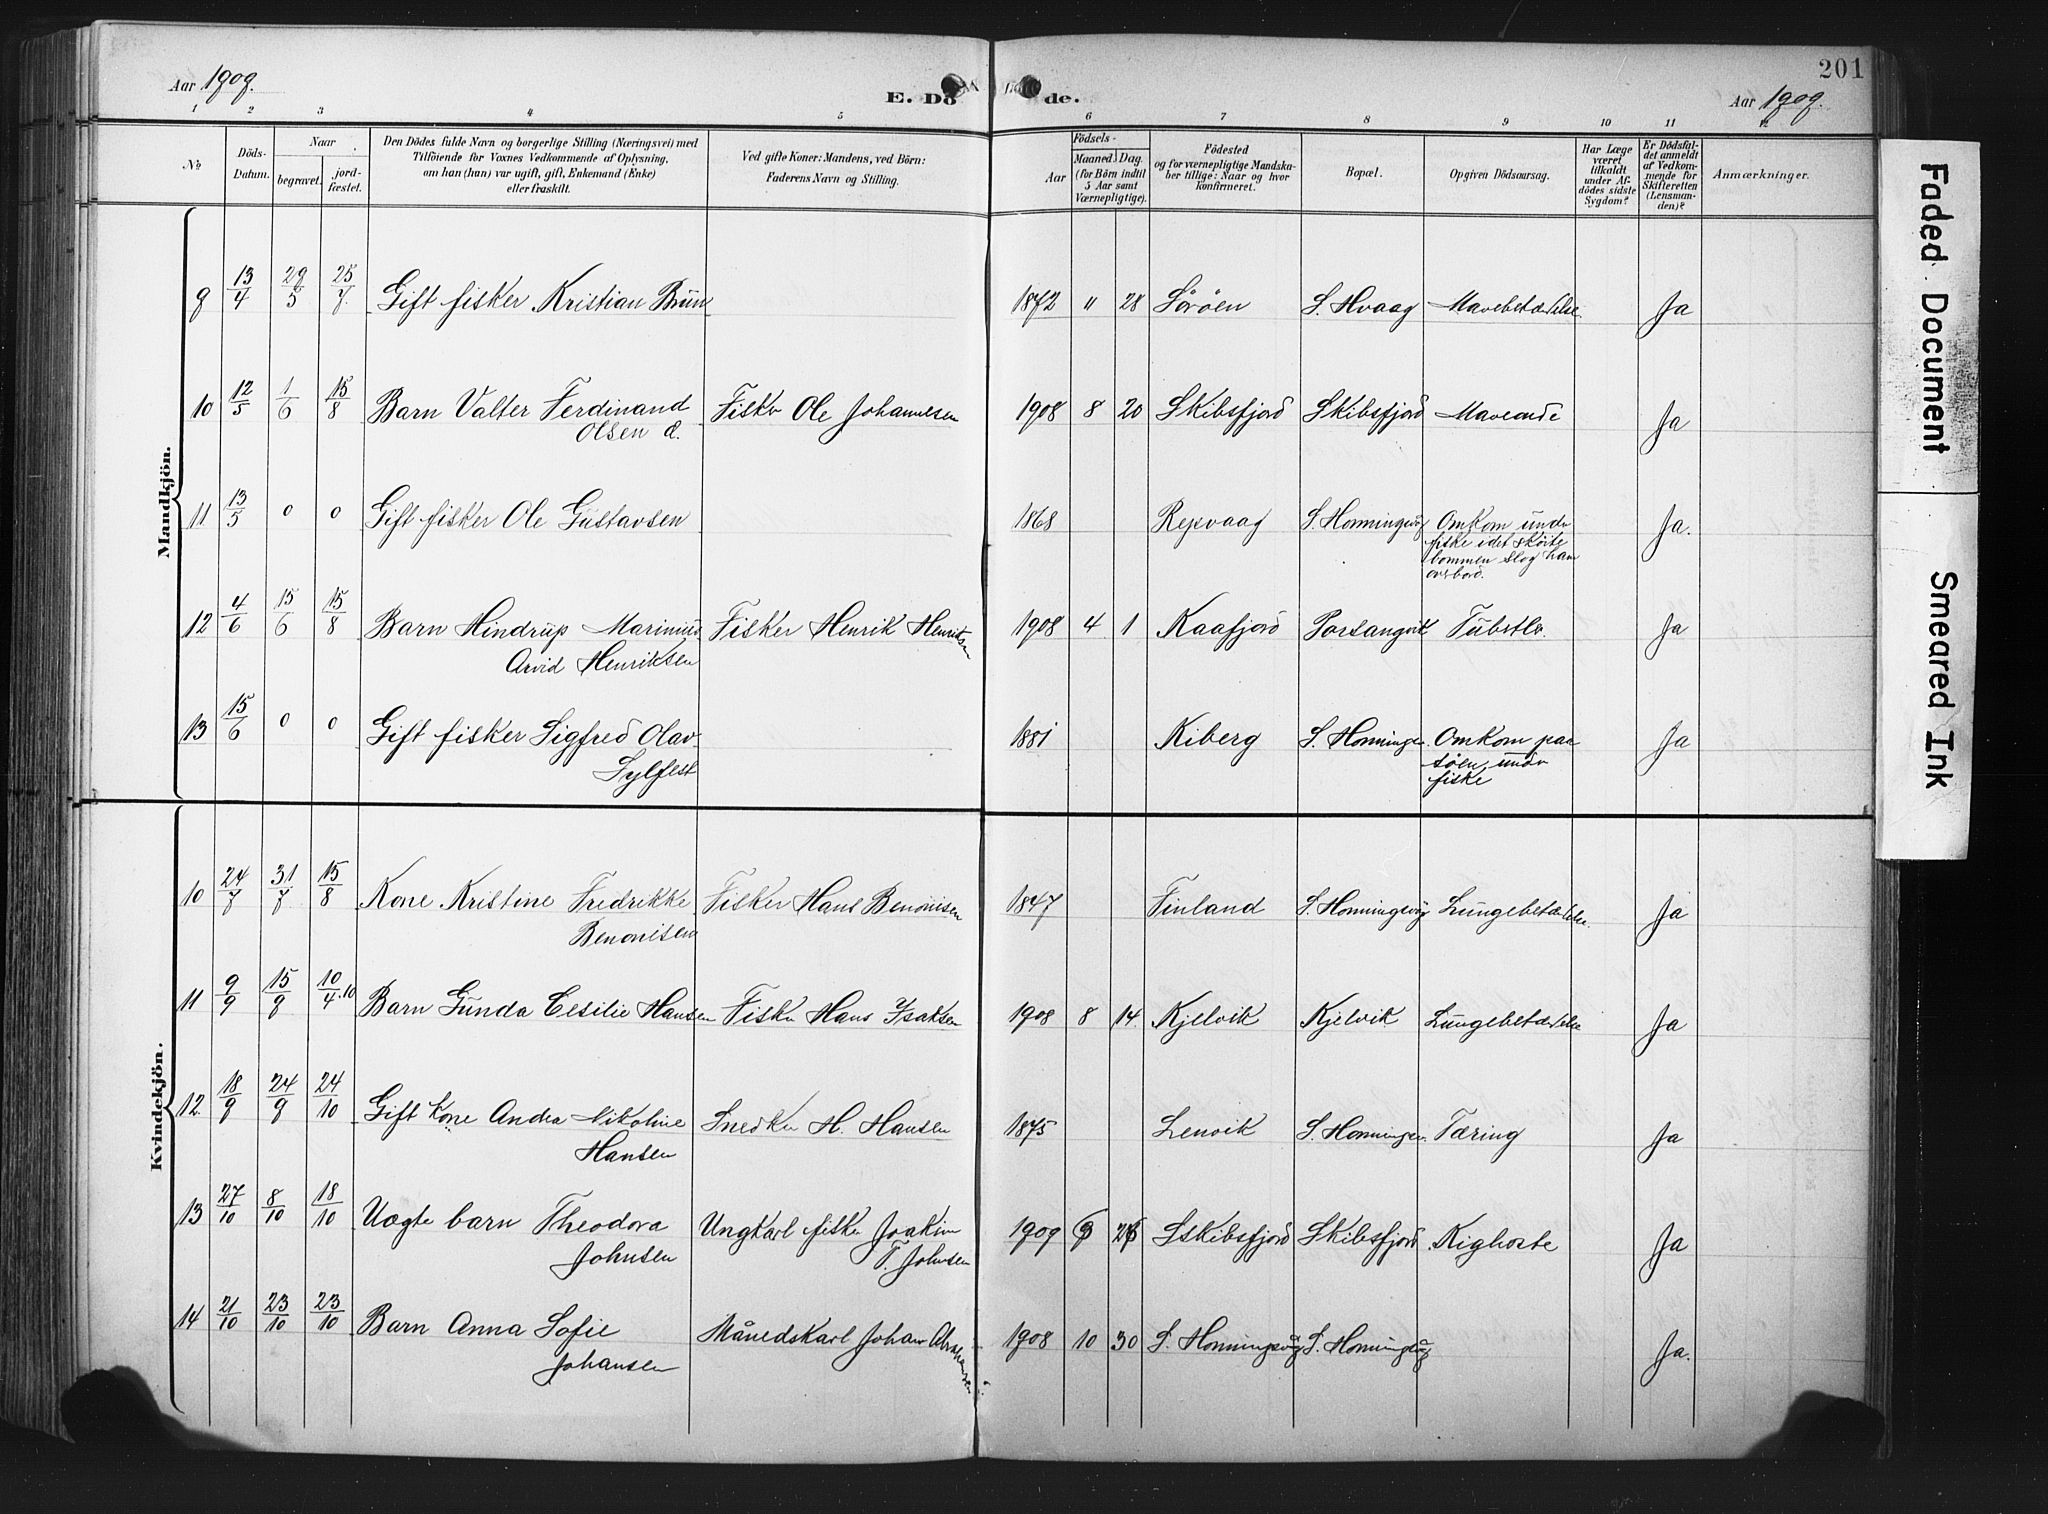 201
Aar 1909.
E. Döde.
Aar 1909.
1 2 3 4 5 6 7 8 9 10 11 12
No
Döds-Datum.
Naar
begravet.
jord-fæstet.
Den Dödes fulde Navn og borgerlige Stilling (Næringsvei) med
Tilföiende for Voxnes Vedkommende af Oplysning,
om han (hun) var ugift, gift, Enkemand (Enke)
eller fraskilt.
Ved gifte Koner: Mandens, ved Börn:
Faderens Navn og Stilling.
Födsels-
Aar
Maaned. Dag.
(for Börn indtil
5 Aar samt
Værnepligtige).
Födested
og for værnepligtige Mandska-
ber tillige: Naar og hvor
konfirmeret.
Bopæl.
Opgiven Dödsaarsag.
Har Læge
været
tilkaldt
under Af-
dödes sidste
Sygdom?
Er Dödsfal-
det anmeldt
af Vedkom-
mende for
Skifteretten
(Lensman-
den)?
Anmærkninger.
Mandkjön.
9 13/4 29/5 25/7 Gift fisker Kristian Brün 1872 " 28 Söröen S. Hvaag Mavebetændelse. Ja
10 12/5 1/6 15/8 Barn Valter Ferdinand Fisker Ole Johannesen 1908 8 20 Skibsfjord Skibsfjord Maveonde Ja
Olsen d.
11 13/5 0 0 Gift fisker Ole Gustavsen 1868 Repvaag S. Honningsvåg Omkom under Ja.
fiske idet skøite
bommen slog ham
overbord.
12 4/6 15/6 15/8 Barn Hindrup Marinius Fisker Henrik Henriksen 1908 4 1 Kaafjord Porsangvik Tuberkler. Ja
Arvid Henriksen
13 15/6 0 0 Gift fisker Sigfred Olav 1881 Kiberg S. Honningsv. Omkom paa Ja
Sylfest
søen under
fiske
Kvindekjön.
10 24/7 31/7 15/8 Kone Kristine Fredrikke Fisker Hans Benonisen 1847 Finland S. Honningsvåg Lungebetændelse. Ja
Benonisen
11 9/9 15/9 10/4.10 Barn Gunda Cesilie Hansen Fisker Hans Isaksen 1908 8 14 Kjelvik Kjelvik Lungebetændelse Ja
12. 18/9 24/9 24/10 Gift Kone Andrea Nikoline Snedker H. Hansen 1875 Lenvik S. Honningsv. Tæring Ja
Hansen
13 27/10 8/10 18/10 Uægte barn Theodora Ungkarl fisker Joakim 1909 Skibsfjord Skibsfjord Kighoste Ja
Johnsen T. Johnsen
14 21/10 23/10 23/10 Barn Anna Sofie Månedskarl Johan Abrahamsen 1908 10 30 S. Honningsvåg S. Honningsvåg Ja.
Johansen
Faded Document
Smeared Ink